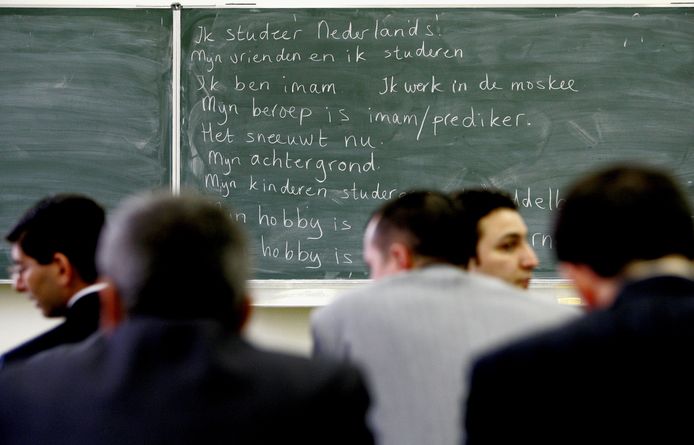 Ik studeer Nederlands!
Mijn vrienden en ik studeren
Ik ben imam Ik werk in de moskee
Mijn beroep is imam/prediker.
Het sneeuwt nu.
Mijn achtergrond.
Mijn kinderen
hobby is
hobby is